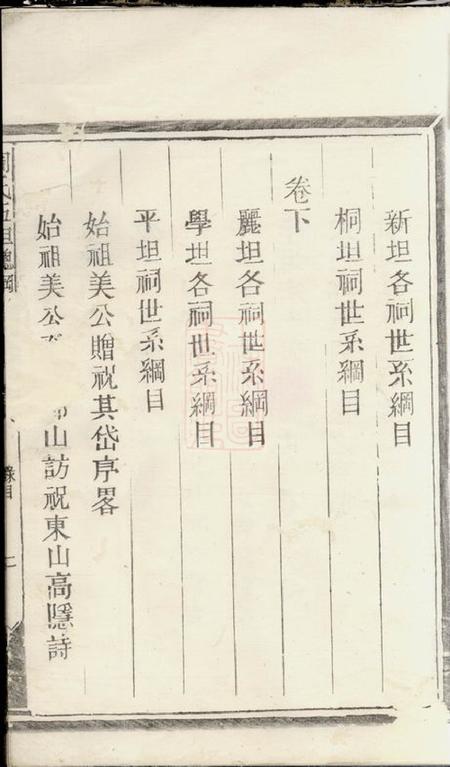 新坦各祠世系綱目
桐坦祠世系綱目
卷下
麗坦各祠世系綱目
學坦各祠世系綱目
平坦祠世系綱目
始祖美公贈祝其岱序畧
始祖美公 山訪祝東山高隱詩
目